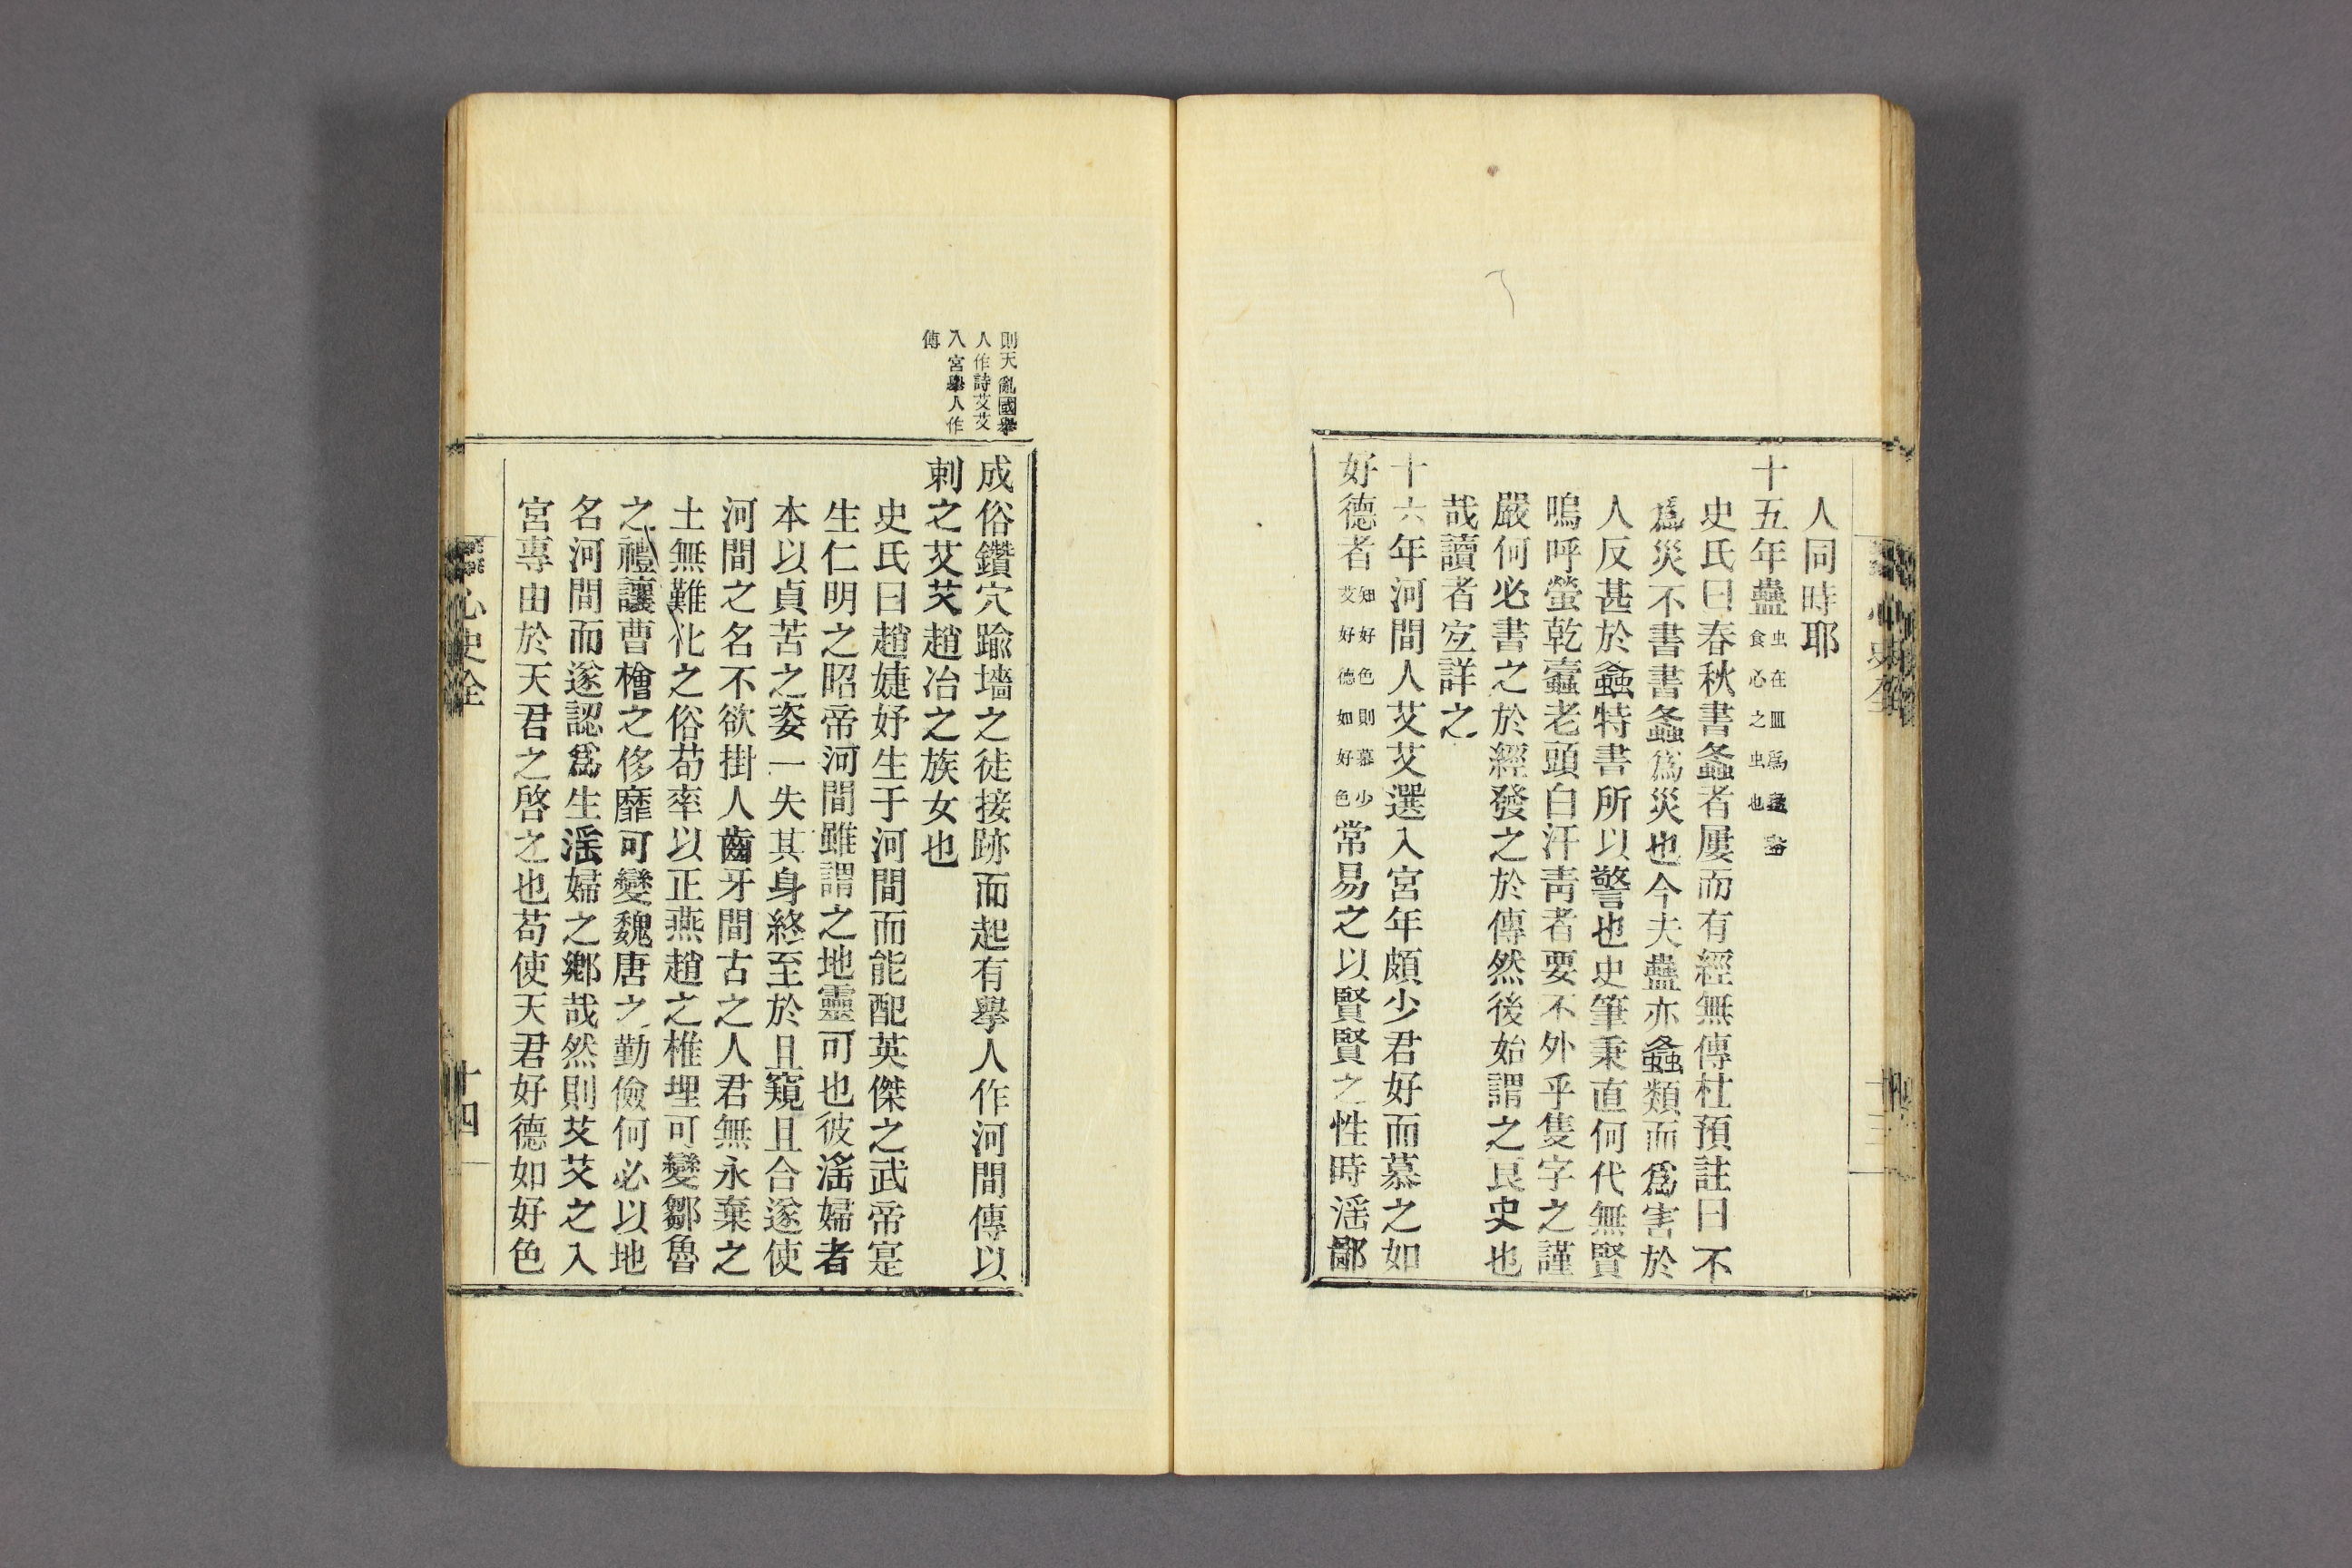 人同時耶
十五年蠱虫在皿爲蠱
食心之虫也
史氏曰春秋書螽者屢而有經無傳杜預註曰不
爲災不書書螽爲災也今夫蠱亦螽類而爲害於
人反甚於螽特書所以警也史筆秉直何代無賢
嗚呼螢乾蠹老頭白汗靑者要不外乎隻字之謹
嚴何必書之於經發之於傳然後始謂之良史也
哉讀者宐詳之
十六年河間人艾艾選入宮年頗少君好而慕之如
好德者知好色則慕少
艾好德如好色常易之以賢賢之性時淫鄙
心史
十三
則天亂國擧
人作詩艾艾
入宮擧人作
傳
成俗鑽穴踰墻之徒接跡而起有擧人作河間傳以
刺之艾艾趙冶之族女也
史氏曰趙婕妤生于河間而能配英傑之武帝寔
生仁明之昭帝河間雖謂之地靈可也彼淫婦者
本以貞苦之姿一失其身終至於且窺且合遂使
河間之名不欲掛人齒牙間古之人君無永棄之
土無難化之俗苟率以正燕趙之椎埋可變鄒魯
之禮讓曹檜之侈靡可變魏唐之勤儉何必以地
名河間而遂認爲生淫婦之鄕哉然則艾艾之入
宮專由於天君之啓之也苟使天君好德如好色
心史全
十四